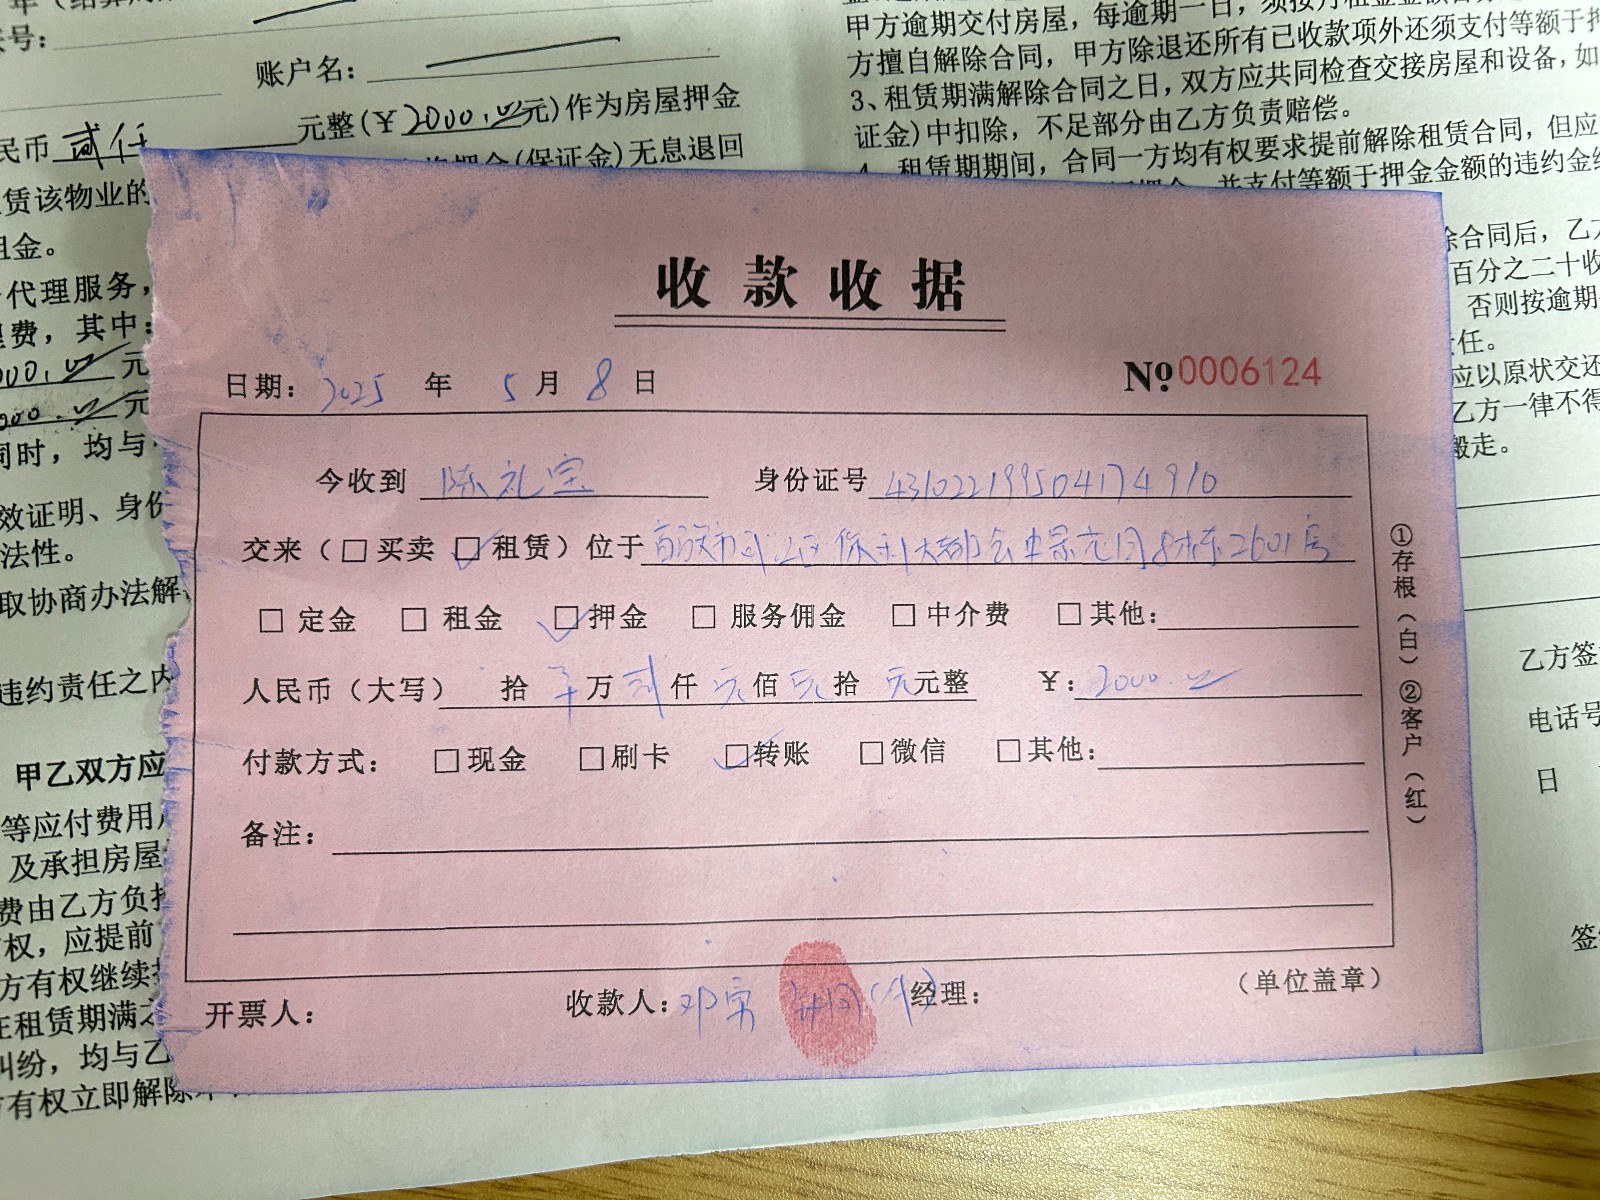 年（结算周
账号：
账户名：
民币 贰仟 元整（￥2000.00元）作为房屋押金
押金（保证金）无息退回
赁该物业的
租金。
代理服务，
费，其中：
000.00 元
000.00 元
同时，均与
效证明、身份
法性。
取协商办法解
违约责任之内
甲乙双方应
等应付费用
及承担房屋
费由乙方负担
权，应提前
方有权继续
在租赁期满之
纠纷，均与乙
方有权立即解除
甲方逾期交付房屋，每逾期一日，须按月租金金额
方擅自解除合同，甲方除退还所有已收款项外还须支付等额于押
3、租赁期满解除合同之日，双方应共同检查交接房屋和设备，如
证金）中扣除，不足部分由乙方负责赔偿。
4、租赁期期间，合同一方均有权要求提前解除租赁合同，但应
并支付等额于押金金额的违约金
除合同后，乙方
百分之二十收
否则按逾期
责任。
应以原状交还
乙方一律不得
搬走。
乙方签
电话号
日
签
收款收据
日期：2025 年 5 月 8 日
№0006124
今收到 陈礼宝 身份证号 431022199504174910
交来（□买卖 ☑租赁）位于 保利大都会 2601房
□ 定金 □ 租金 ☑ 押金 □ 服务佣金 □ 中介费 □ 其他：
人民币（大写） 拾 万 贰 仟 元 佰 元 拾 元 元整 ￥：2000.00
付款方式： □ 现金 □ 刷卡 ☑ 转账 □ 微信 □ 其他：
备注：
开票人： 收款人：邓 经理： （单位盖章）
①存根（白）②客户（红）